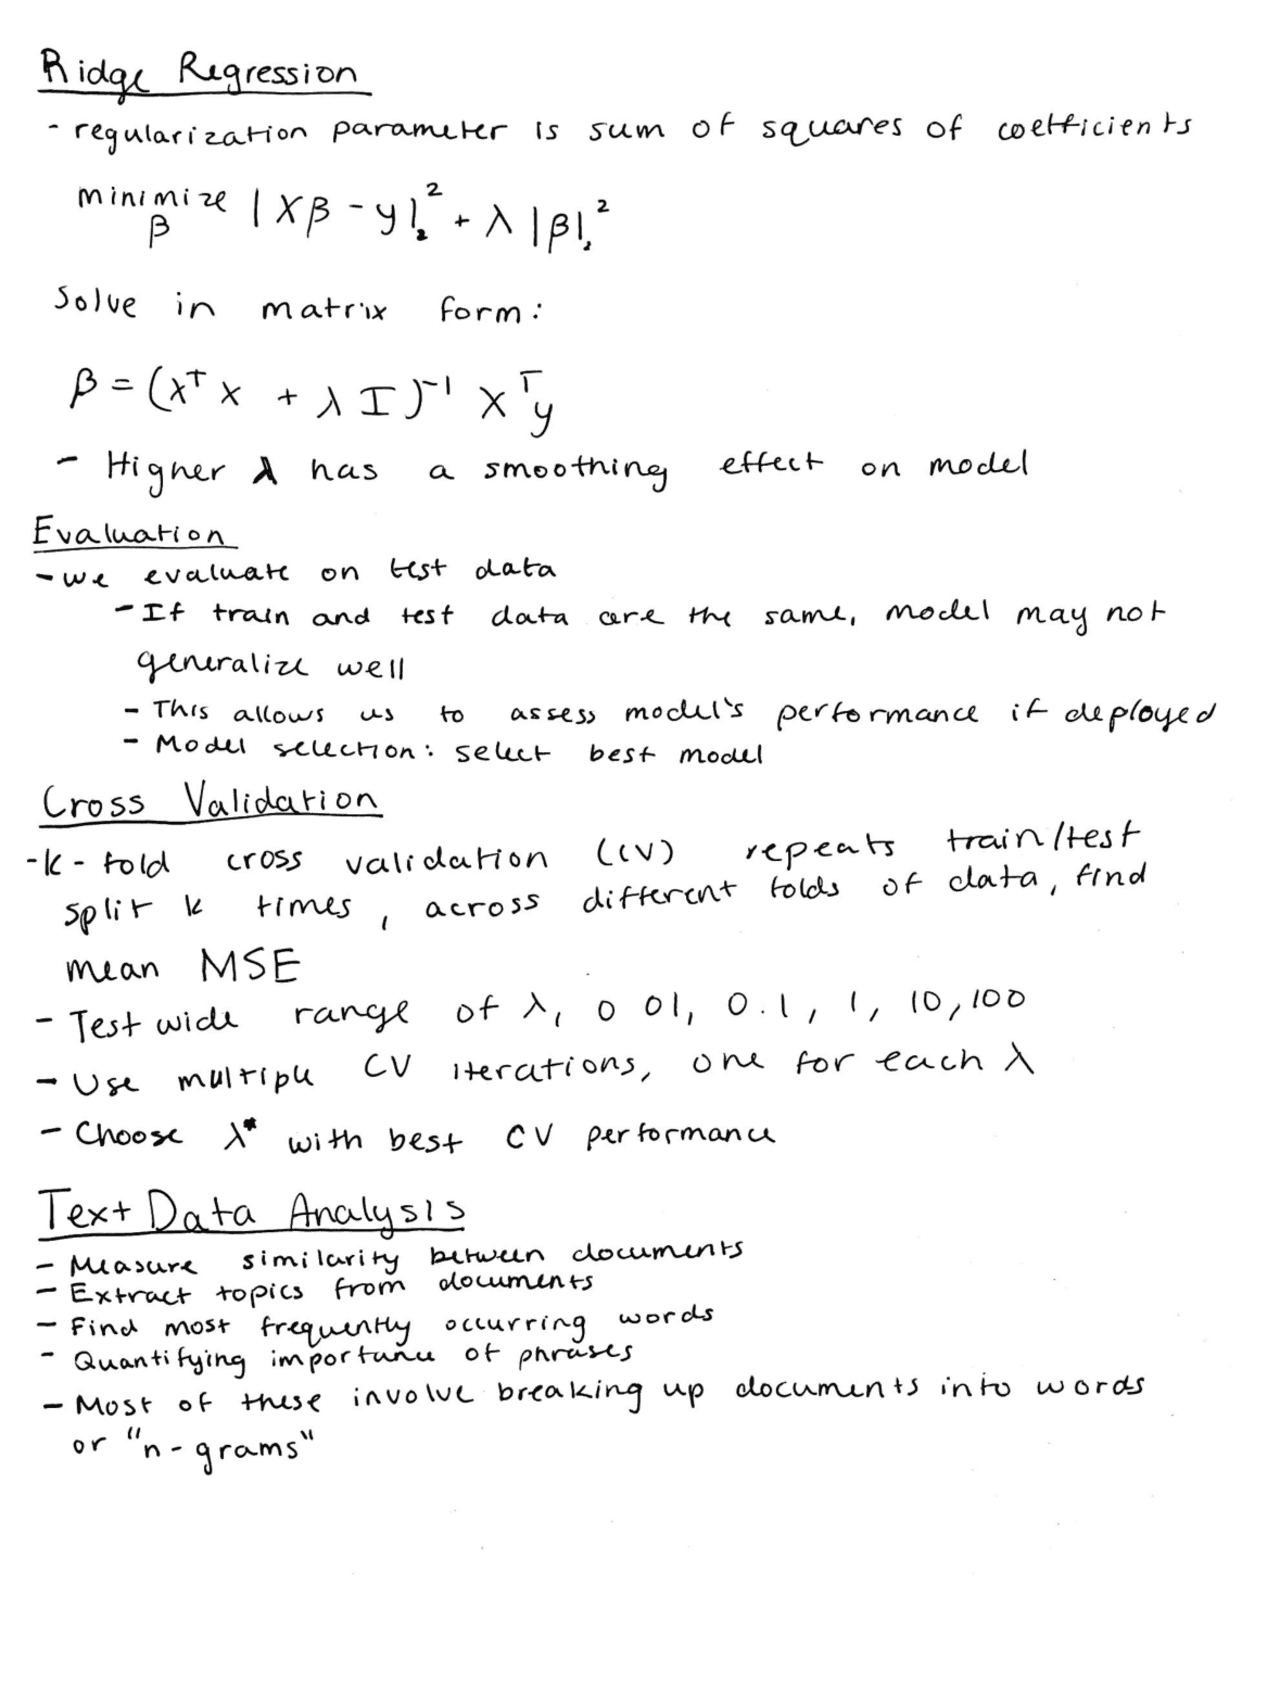 Ridge Regression
- regularization parameter is sum of squares of coefficients
minimize |Xβ - y|₂² + λ |β|₂²
β
Solve in matrix form:
β = (XᵀX + λI)⁻¹ Xᵀy
- Higher λ has a smoothing effect on model
Evaluation
- we evaluate on test data
- If train and test data are the same, model may not
generalize well
- This allows us to assess model's performance if deployed
- Model selection: select best model
Cross Validation
- k-fold cross validation (CV) repeats train/test
split k times, across different folds of data, find
mean MSE
- Test wide range of λ, 0 01, 0.1, 1, 10, 100
- Use multiple CV iterations, one for each λ
- Choose λ* with best CV performance
Text Data Analysis
- Measure similarity between documents
- Extract topics from documents
- Find most frequently occurring words
- Quantifying importance of phrases
- Most of these involve breaking up documents into words
or "n-grams"